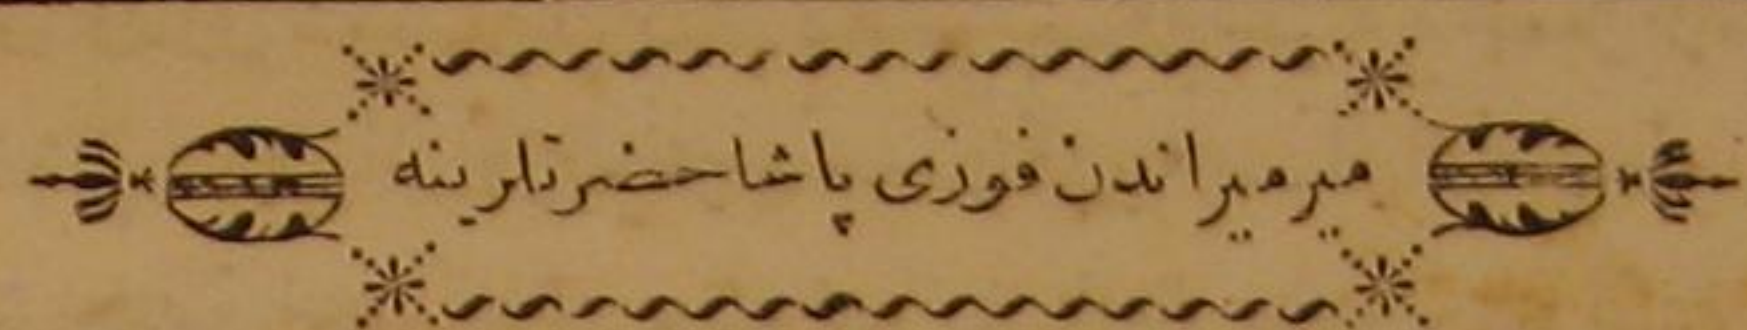 میرمیراندن فوزی پاشا حضرتلرینه